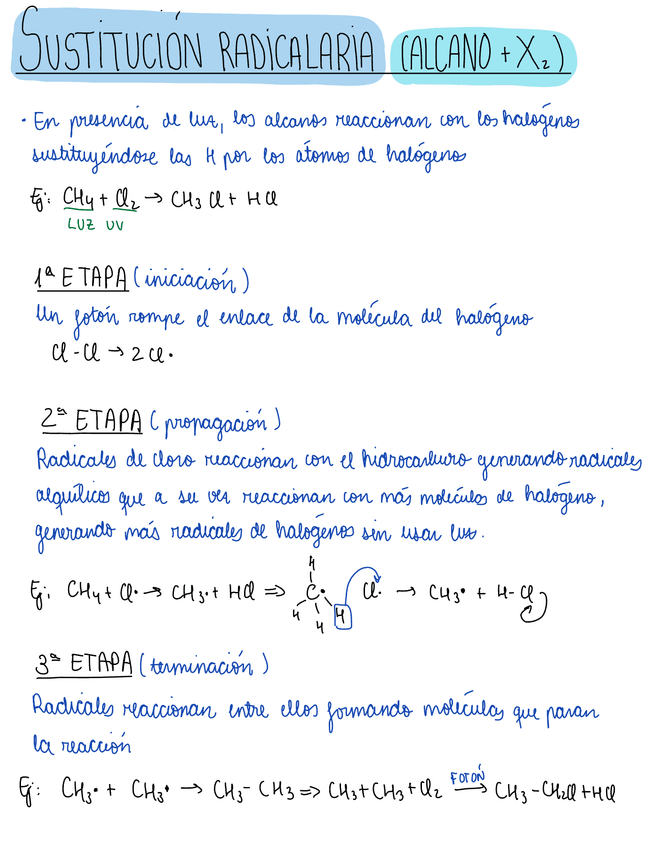 SUSTITUCIÓN RADICALARIA (ALCANO + X₂)
· En presencia de luz, los alcanos reaccionan con los halógenos
sustituyéndose las H por los átomos de halógeno
Ej: CH4 + Cl2 → CH3 Cl + HCl
LUZ UV
1ª ETAPA (iniciación)
Un fotón rompe el enlace de la molécula del halógeno
Cl - Cl → 2 Cl·
2ª ETAPA (propagación)
Radicales de cloro reaccionan con el hidrocarburo generando radicales
alquílicos que a su vez reaccionan con más moléculas de halógeno,
generando más radicales de halógenos sin usar luz.
H
Ej: CH4 + Cl· → CH3· + HCl ⇒ C· H Cl· → CH3· + H-Cl
H
H
3ª ETAPA (terminación)
Radicales reaccionan entre ellos formando moléculas que paran
la reacción
Ej: CH3· + CH3· → CH3 - CH3 ⇒ CH3 + CH3 + Cl2 FOTÓN → CH3 - CH2Cl + HCl